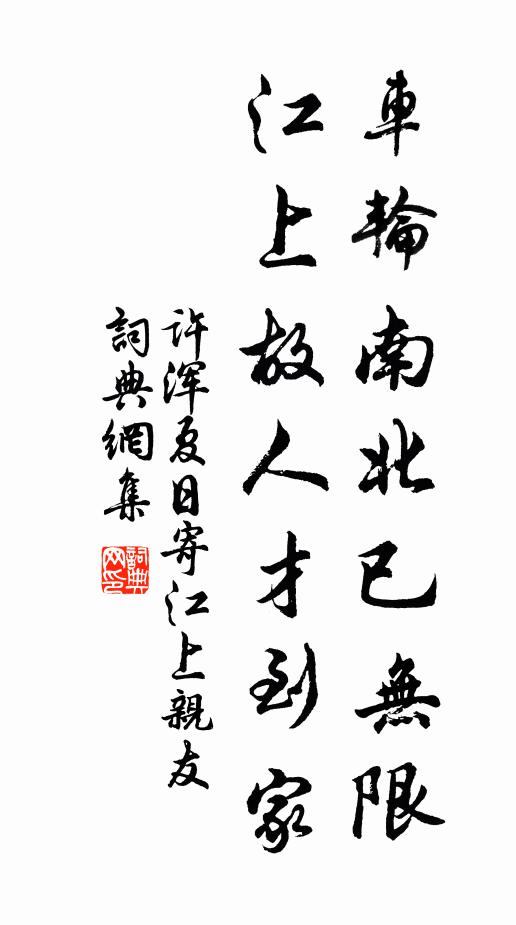 車輪南北已無限
江上故人才到家
许渾夏日寄江上親友
詞典網集
詞典网印